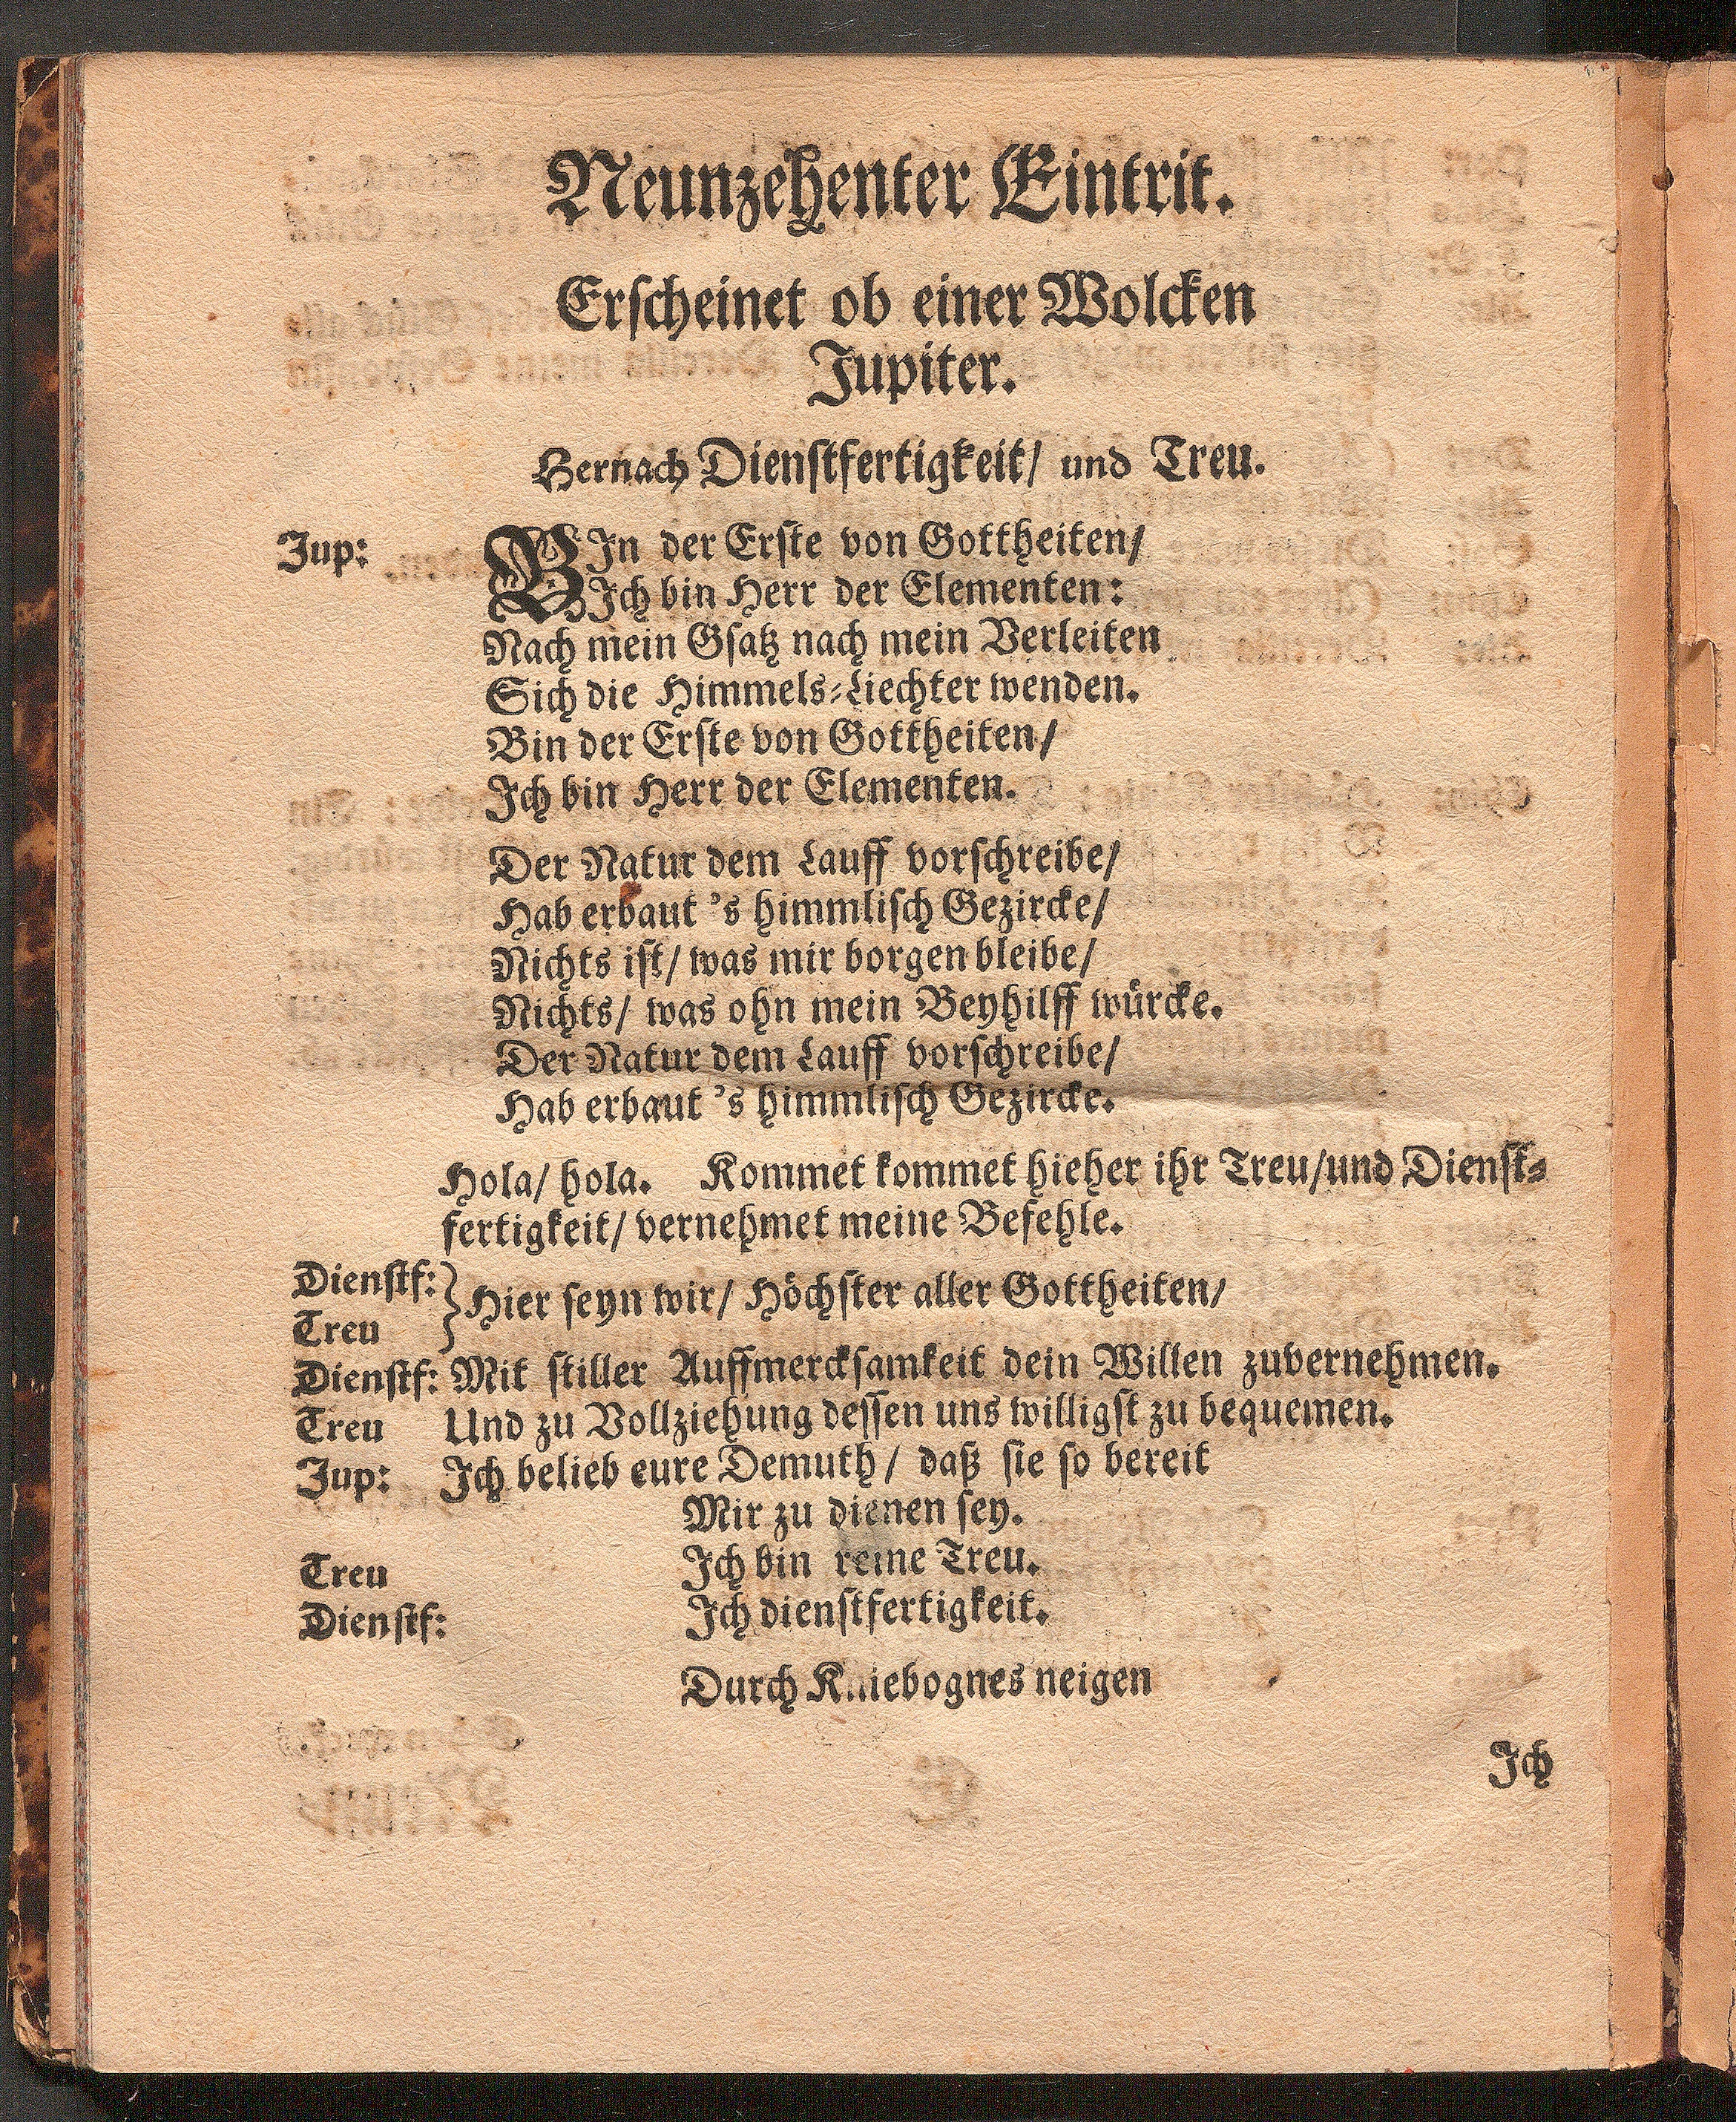 Neunzehenter Eintrit.
Erscheinet ob einer Wolcken
Jupiter.
Hernach Dienstfertigkeit/ und Treu.
Jup: BIn der Erste von Gottheiten/
Ich bin Herr der Elementen:
Nach mein Gsatz nach mein Verleiten
Sich die Himmels-Liechter wenden.
Bin der Erste von Gottheiten/
Ich bin Herr der Elementen.
Der Natur dem Lauff vorschreibe/
Hab erbaut 's himmlisch Gezircke/
Nichts ist/ was mir borgen bleibe/
Nichts/ was ohn mein Beyhilff würcke.
Der Natur dem Lauff vorschreibe/
Hab erbaut 's himmlisch Gezircke.
Hola/ hola. Kommet kommet hieher ihr Treu/und Dienst-
fertigkeit/ vernehmet meine Befehle.
Dienstf:
Treu } Hier seyn wir/ Höchster aller Gottheiten/
Dienstf: Mit stiller Auffmercksamkeit dein Willen zuvernehmen.
Treu Und zu Vollziehung dessen uns willigst zu bequemen.
Jup: Ich belieb eure Demuth/ daß sie so bereit
Mir zu dienen sey.
Treu Ich bin reine Treu.
Dienstf: Ich dienstfertigkeit.
Durch Kniebognes neigen
Ich